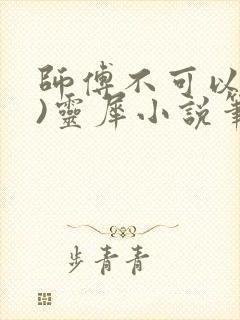 師傅不可以
)靈犀小說筆
步青青